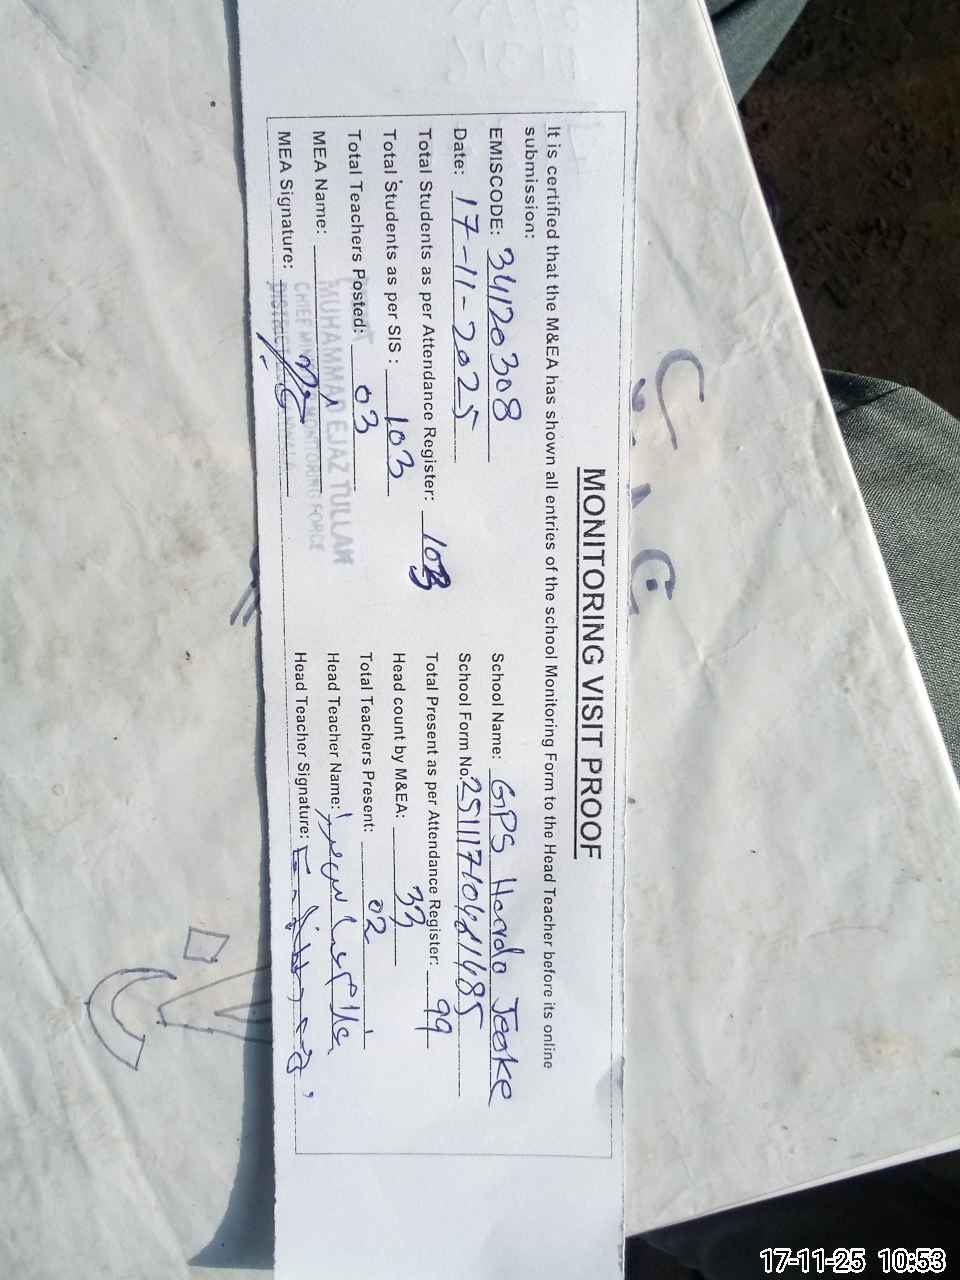 MONITORING VISIT PROOF
It is certified that the M&EA has shown all entries of the school Monitoring Form to the Head Teacher before its online
submission:
EMISCODE: 34120308 School Name: GPS Hardo Jeoke
Date: 17-11-2025 School Form No.
Total Students as per Attendance Register: 103 Total Present as per Attendance Register: 99
Total Students as per SIS : 103 Head count by M&EA: 33
Total Teachers Posted: 03 Total Teachers Present: 02
MEA Name: MUHAMMAD EJAZ TULLAH Head Teacher Name:
CHIEF MINISTER MONITORING FORCE
MEA Signature: Head Teacher Signature:
17-11-25 10:53